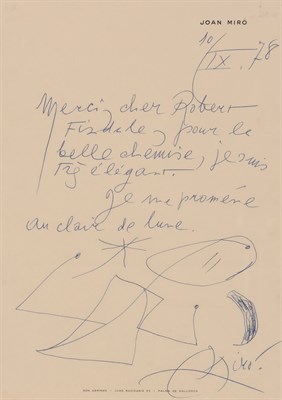 JOAN MIRÓ
10/IX.78
Merci, cher Robert
Fizdale, pour la
belle chemise, je suis
très élégant.
Je me promène
au clair de lune.
Miró.